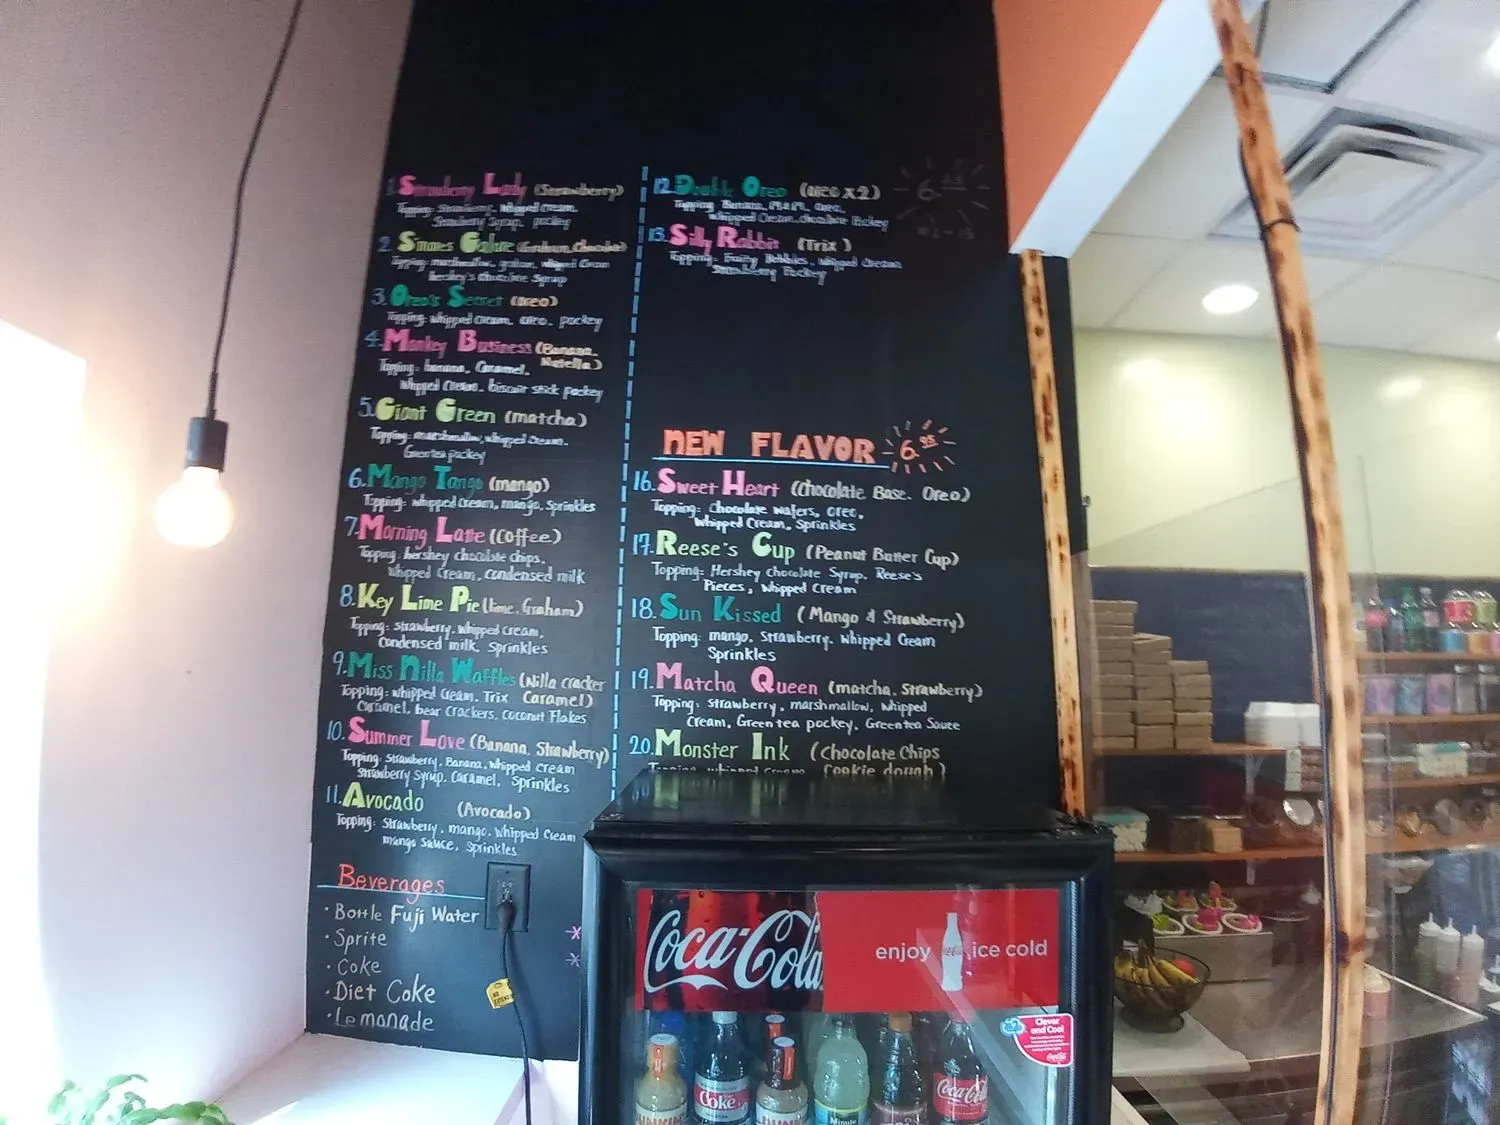 1. Strawberry Lady (Strawberry)
Topping: Strawberry, Whipped Cream,
Strawberry Syrup, pockey
2. Smores Galore (Graham, Chocolate)
Topping: marshmallow, graham, whipped Cream
hershey's chocolate Syrup
3. Oreo's Secret (oreo)
Topping: Whipped cream, oreo, pockey
4. Monkey Business (Banana,
Nutella)
Topping: banana, Caramel,
Whipped Cream, biscuit stick pockey
5. Giant Green (matcha)
Topping: marshmallow, whipped Cream,
Green tea pockey
6. Mango Tango (mango)
Topping: whipped cream, mango, Sprinkles
7. Morning Latte (Coffee)
Topping: hershey chocolate chips,
Whipped Cream, condensed milk
8. Key Lime Pie (lime, Graham)
Topping: strawberry, whipped cream,
condensed milk, Sprinkles
9. Miss Nilla Waffles (Nilla cracker
Caramel)
Topping: whipped cream, Trix
Caramel, bear crackers, coconut Flakes
10. Summer Love (Banana, Strawberry)
Topping: Strawberry, Banana, whipped cream
Strawberry Syrup, Caramel, Sprinkles
11. Avocado (Avocado)
Topping: Strawberry, mango, whipped Cream
mango Sauce, Sprinkles
Beverages
· Bottle Fuji Water
· Sprite
· Coke
· Diet Coke
· Lemonade
12. Double Oreo (oreo x 2)
Topping: Banana, M&M, oreo,
Whipped Cream, chocolate Pockey
13. Silly Rabbit (Trix)
Topping: Fruity Pebbles, whipped Cream
Strawberry Pockey
NEW FLAVOR 6.95
16. Sweet Heart (Chocolate Base, Oreo)
Topping: Chocolate wafers, oreo,
Whipped Cream, Sprinkles
17. Reese's Cup (Peanut Butter Cup)
Topping: Hershey Chocolate Syrup, Reese's
Pieces, whipped cream
18. Sun Kissed (Mango & Strawberry)
Topping: mango, Strawberry, Whipped Cream
Sprinkles
19. Matcha Queen (matcha, Strawberry)
Topping: Strawberry, marshmallow, whipped
Cream, Green tea pockey, Green tea Sauce
20. Monster Ink (Chocolate Chips
Cookie dough)
Topping: whipped cream
Coca-Cola
enjoy ice cold
Clever
and Cool
Coca-Cola
Coke
Minute
Coca-Cola